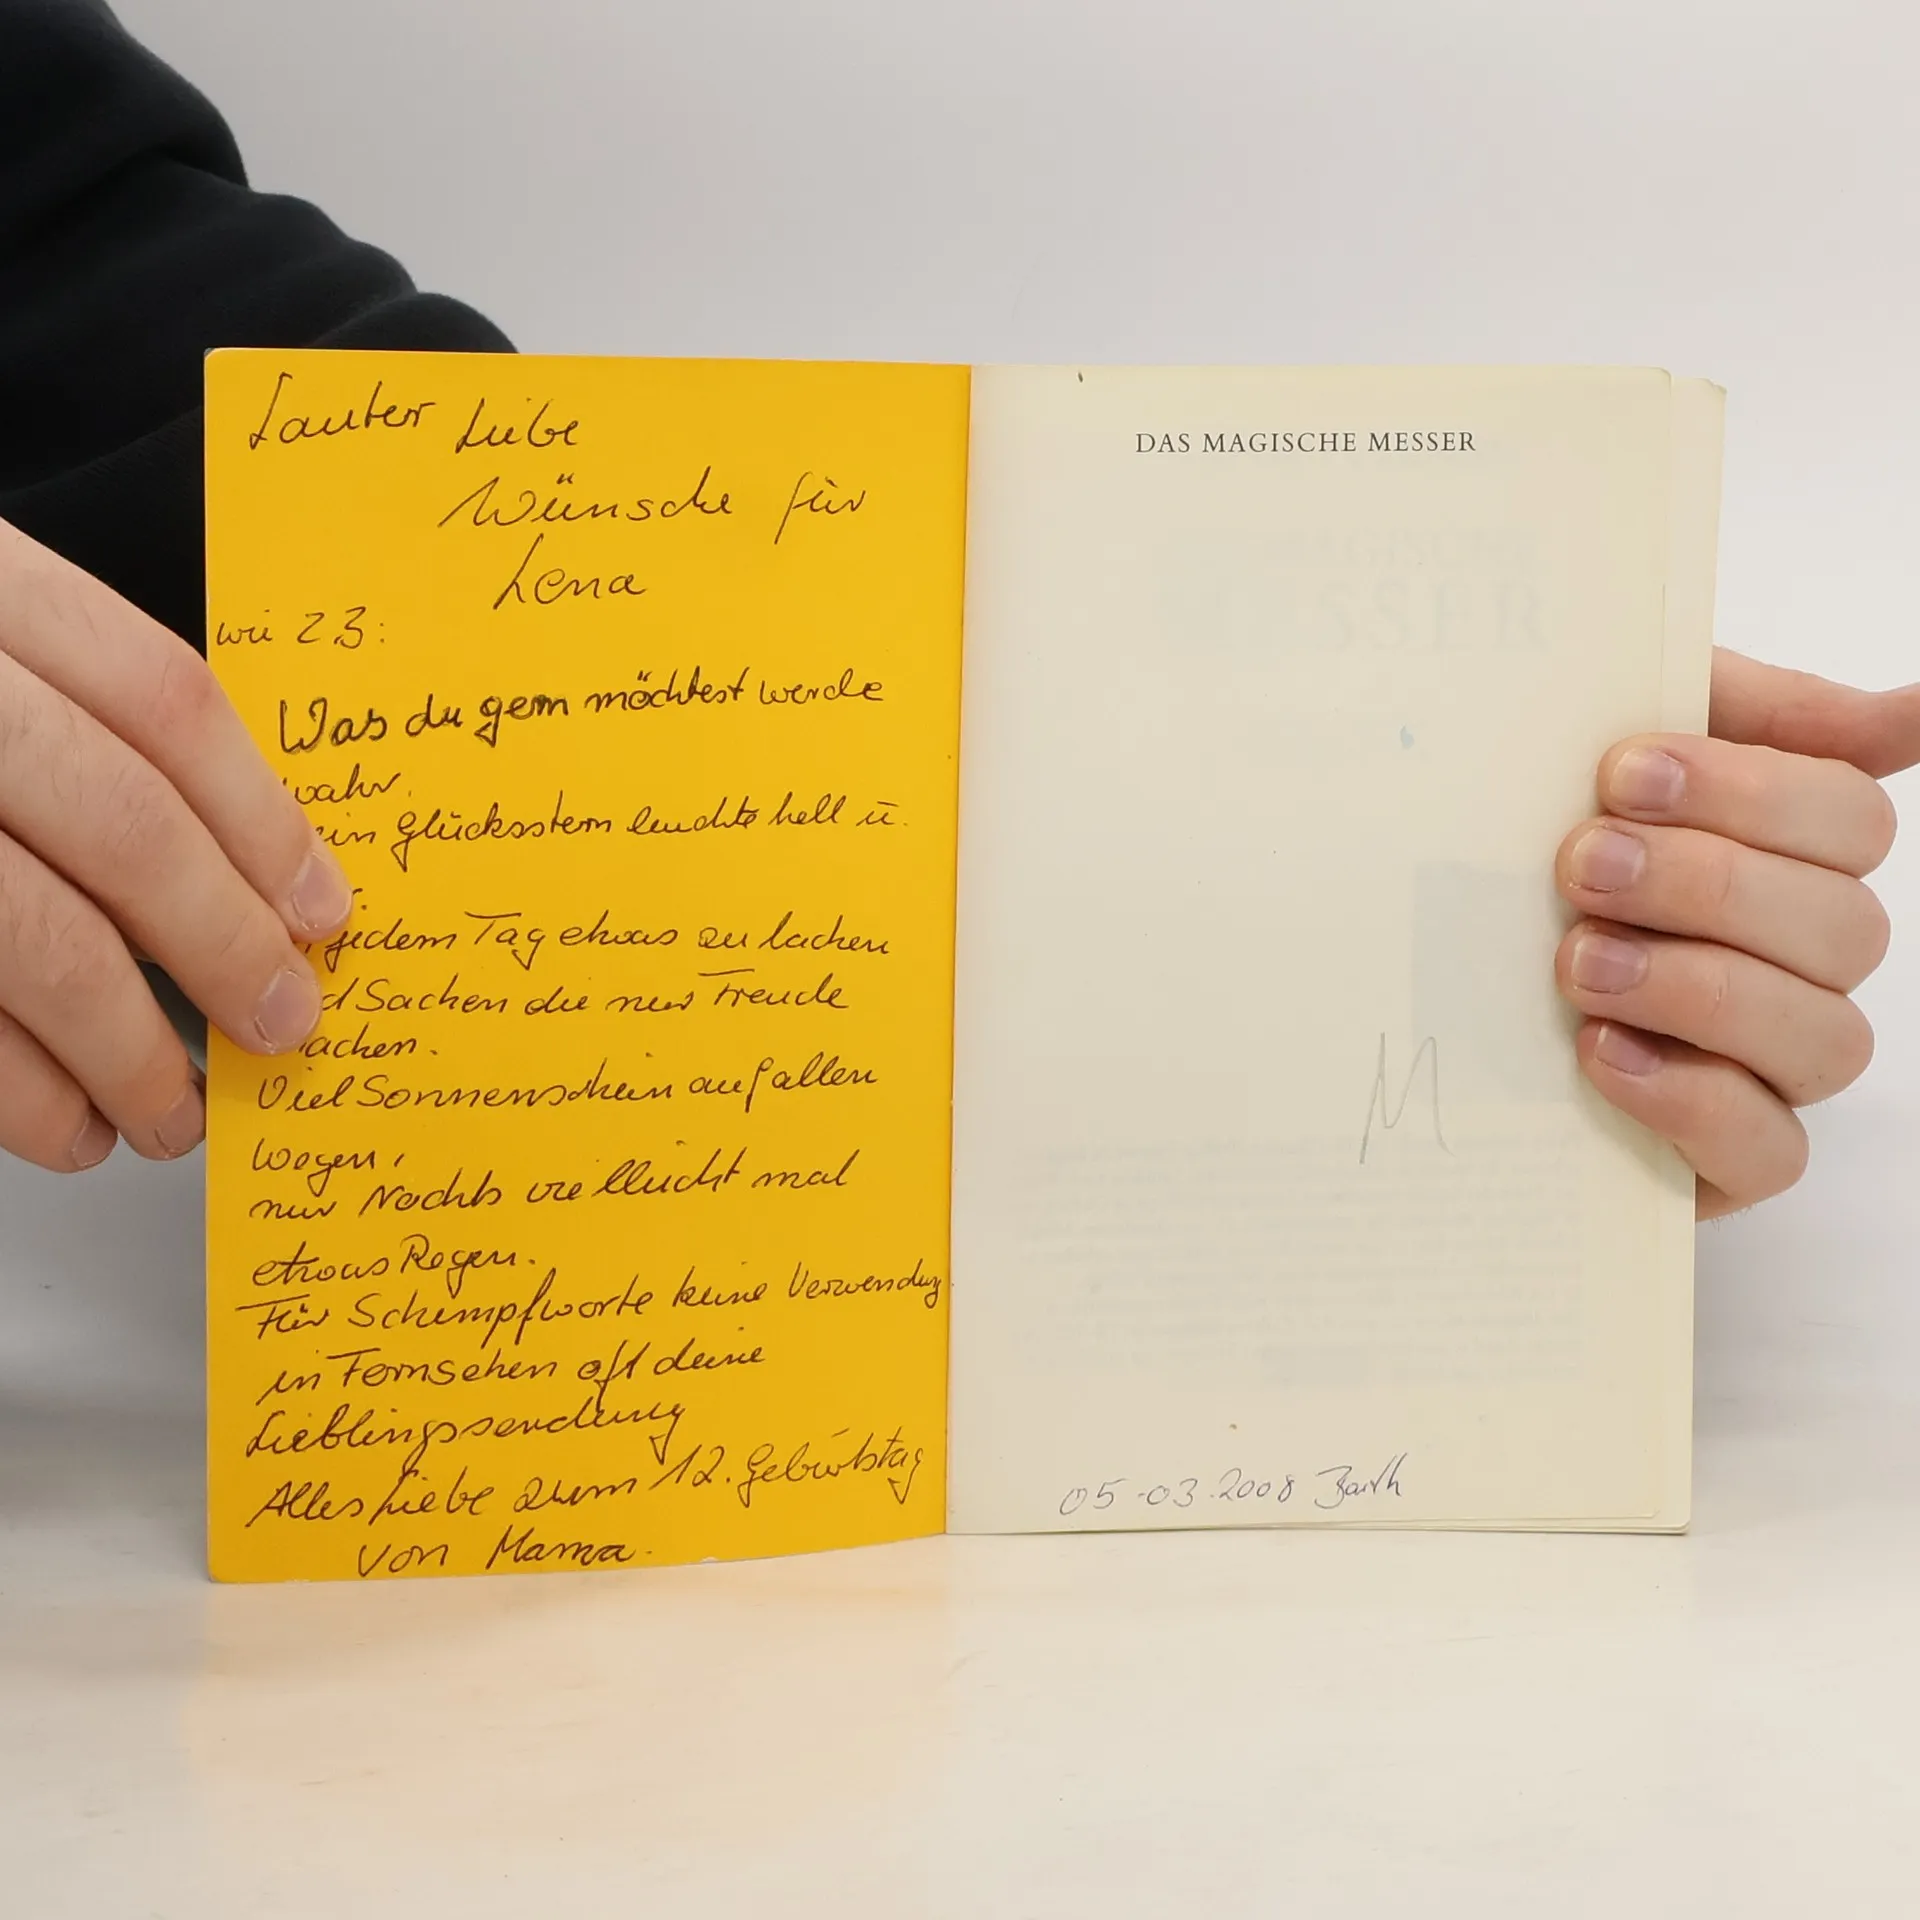 Lauter Liebe
Wünsche für
Lena
wie z.B:
Was du gern möchtest werde
wahr.
ein Glücksstern leuchte hell u.
jedem Tag etwas zu lachen
d Sachen die nur Freude
achen.
Viel Sonnenschein auf allen
Wegen,
nur Nachts vielleicht mal
etwas Regen.
Für Schimpfworte keine Verwendung
in Fernsehen oft deine
Lieblingssendung
Alles Liebe zum 12. Geburtstag
von Mama.
DAS MAGISCHE MESSER
M
05-03.2008 Barth